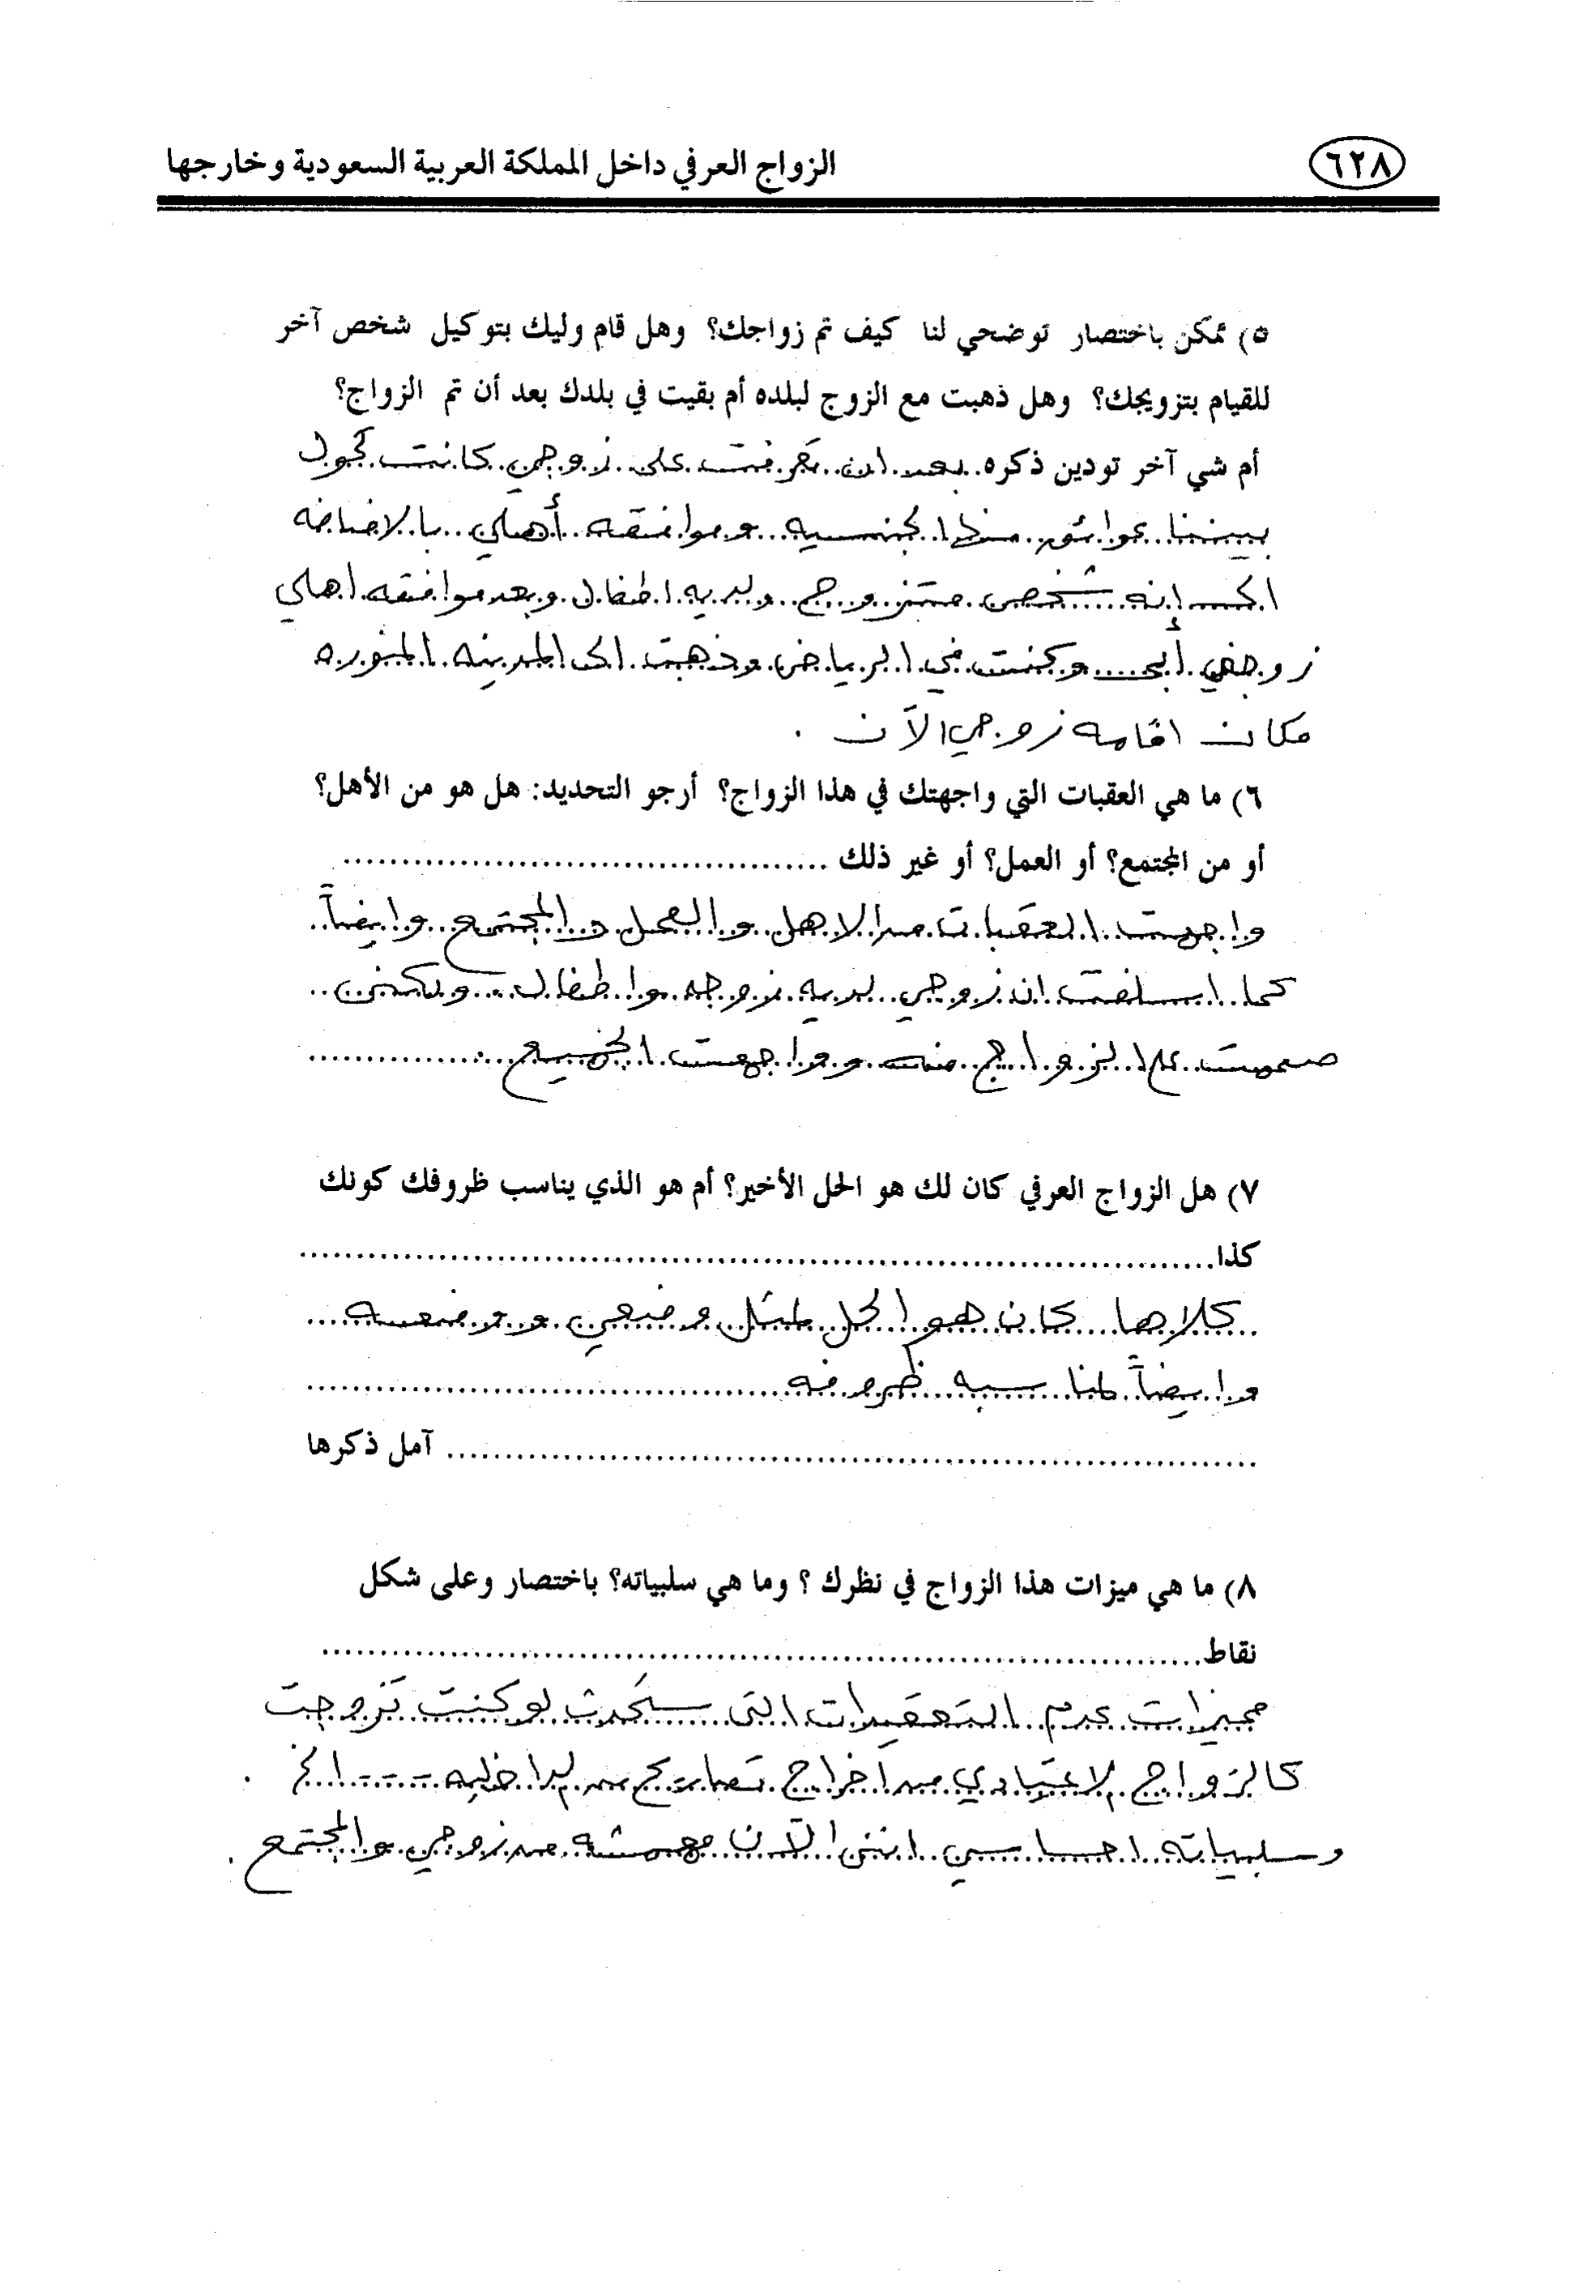 ٦٢٨
الزواج العرفي داخل المملكة العربية السعودية وخارجها
٥) ممكن باختصار توضحي لنا كيف تم زواجك؟ وهل قام وليك بتوكيل شخص آخر
للقيام بتزويجك؟ وهل ذهبت مع الزوج لبلده أم بقيت في بلدك بعد أن تم الزواج؟
أم شي آخر تودين ذكره.. بعد ان تعرفت على زوجي كانت تحول
بيننا عوائق منها الجنسيه وموافقه أهلي بالاضافه
الى إنه شخص متزوج ولديه اطفال وبعد موافقه اهلي
زوجني أبي وكنت في الرياض وذهبت الى المدينه المنوره
مكان اقامه زوجي الآن .
٦) ما هي العقبات التي واجهتك في هذا الزواج؟ أرجو التحديد: هل هو من الأهل؟
أو من المجتمع؟ أو العمل؟ أو غير ذلك ..........................................
واجهت العقبات من الاهل والعمل والمجتمع وايضاً..
كما اسلفت ان زوجي لديه زوجه واطفال ... ولكنني ..
صممت ع الزواج منه وواجهت الجميع .................
٧) هل الزواج العرفي كان لك هو الحل الأخير؟ أم هو الذي يناسب ظروفك كونك
كذا................................................................................
.. كلاهما كان هو الحل لمثل وضعي ووضعه ....
وايضاً لمناسبه ظروفه ..........................................
....................................................................... آمل ذكرها
٨) ما هي ميزات هذا الزواج في نظرك ؟ وما هي سلبياته؟ باختصار وعلى شكل
نقاط.............................................................................
مميزات عدم التعقيدات التي ستحدث لو كنت تزوجت
كالزواج الاعتيادي من اخراج تصاريح من الداخليه ---- الخ .
وسلبياته احساسي انني الآن مهمشه من زوجي والمجتمع .